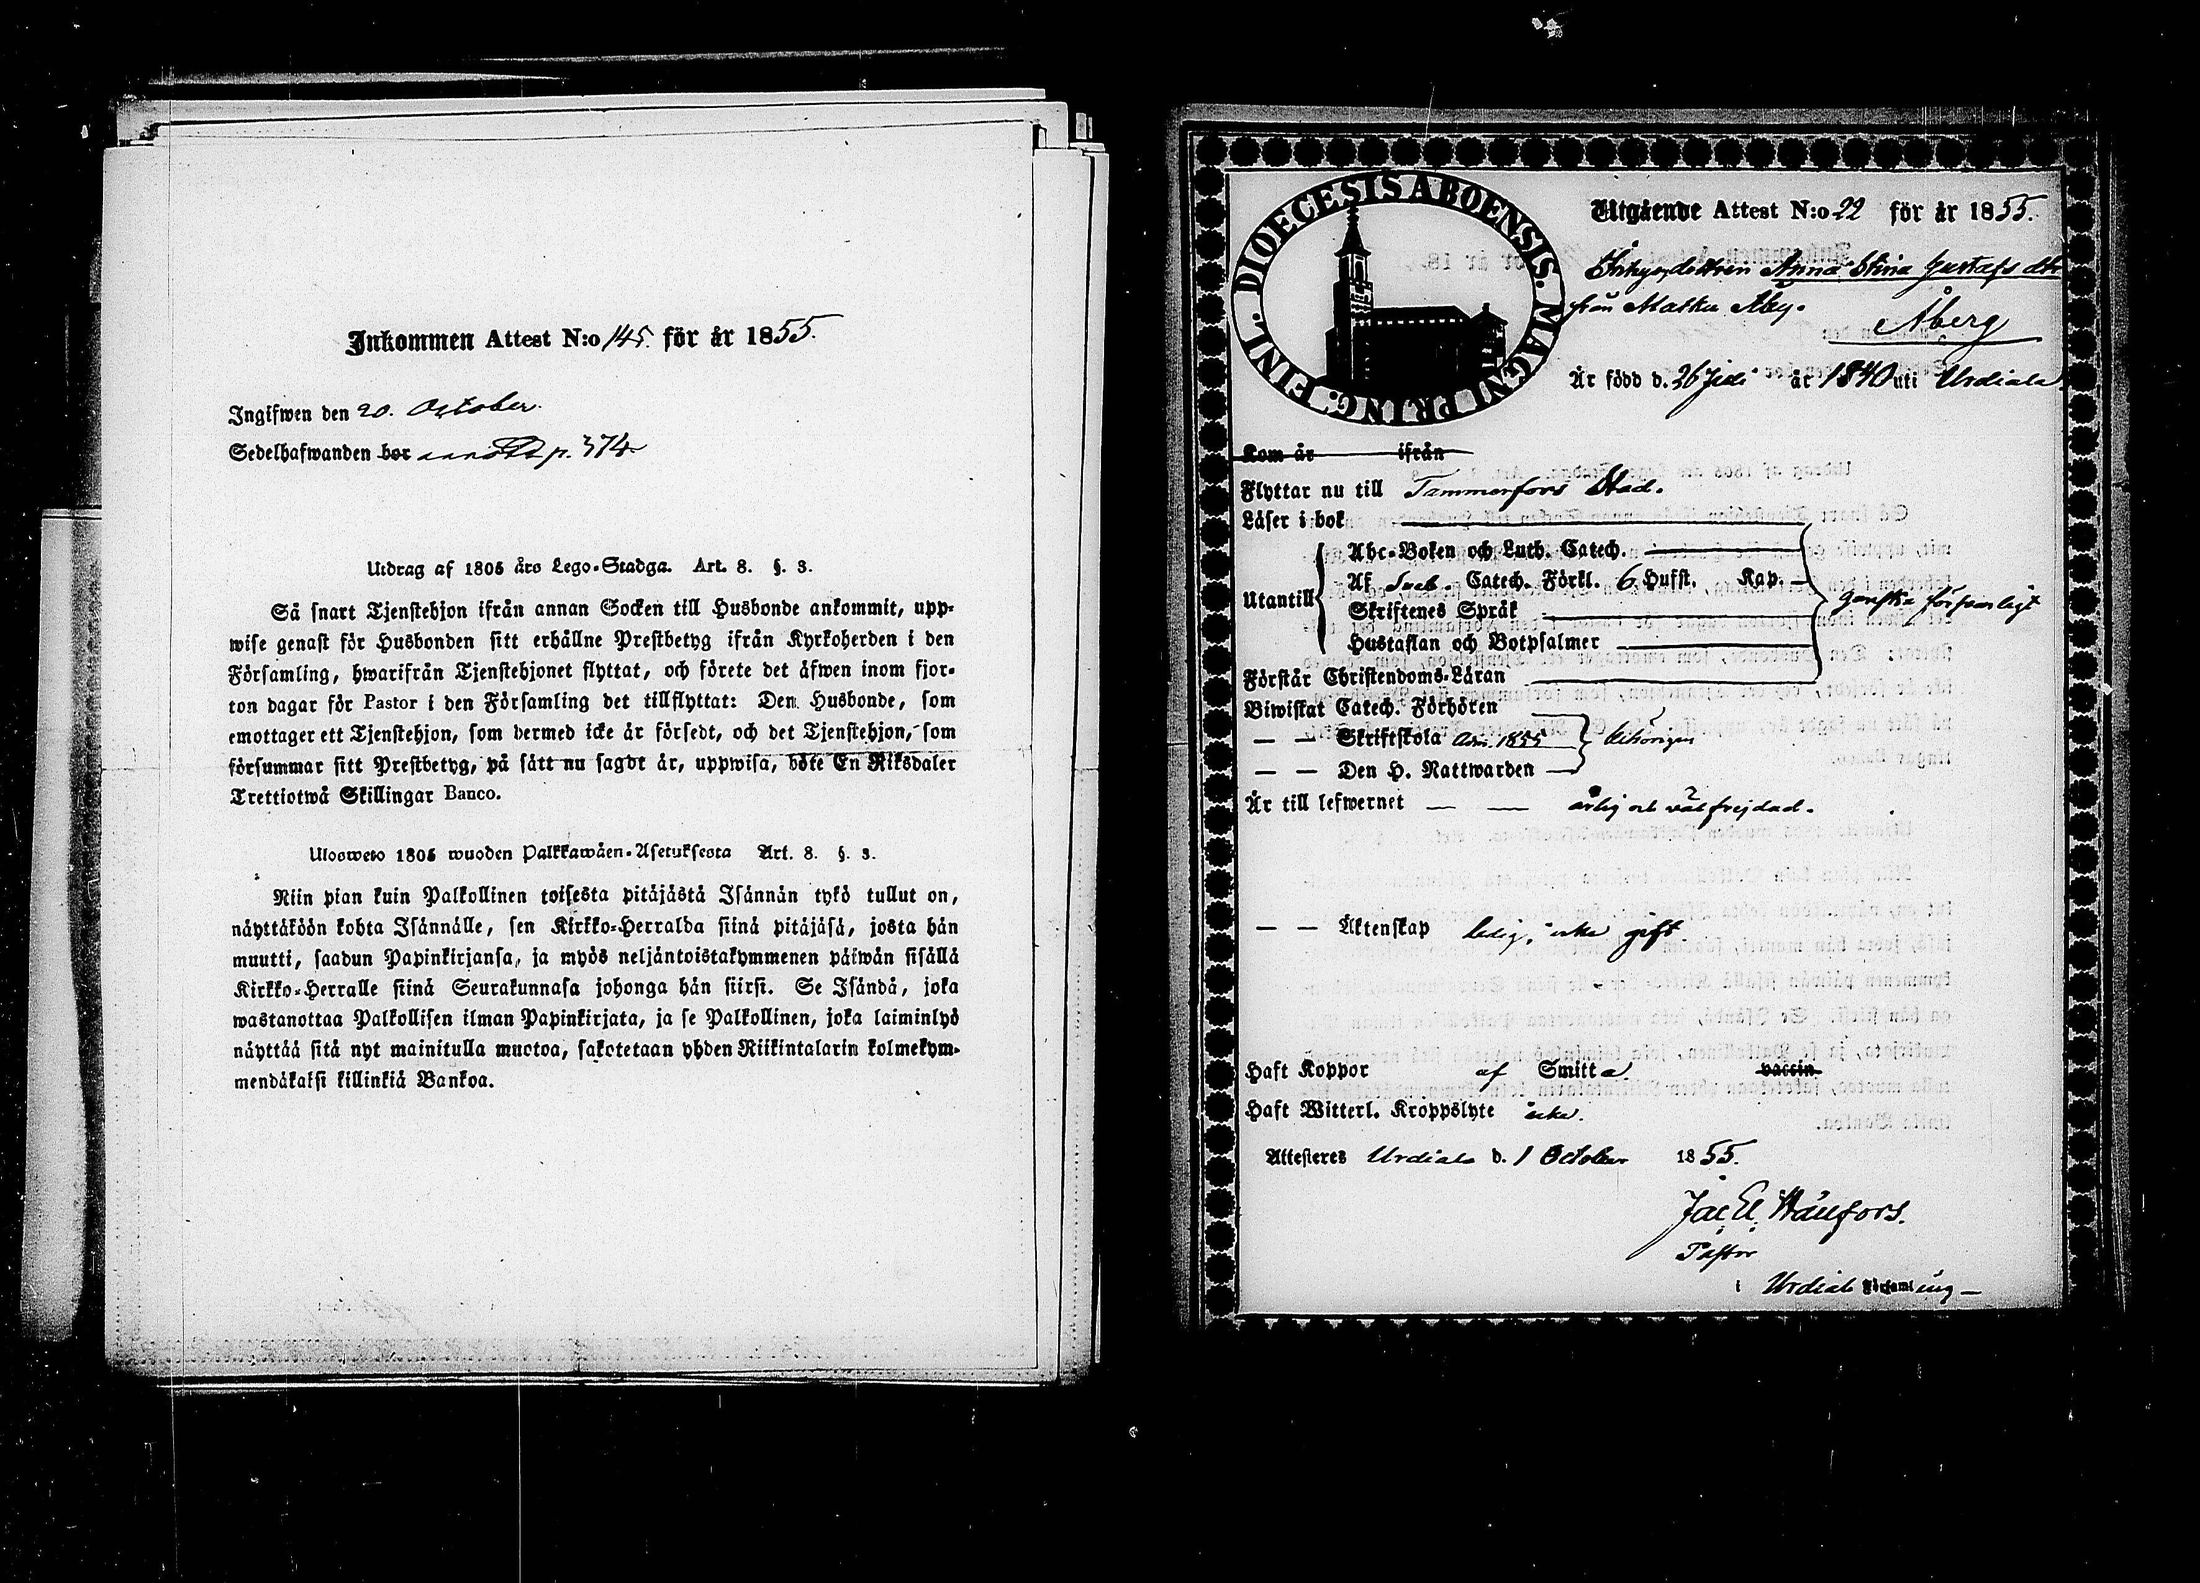 Inkommen Attest N:o 145. för år 1855.
Ingifwen den 20. October.
Sedelhafwanden bor p. 374.
Utdrag af 1805 års Lego-Stadga. Art. 8. §. 3.
Så snart Tjenstehjon ifrån annan Socken till Husbonde ankommit, upp-
wise genast för Husbonden sitt erhållne Prestbetyg ifrån Kyrkoherden i den
Församling, hwarifrån Tjenstehjonet flyttat, och förete det äfwen inom fjor-
ton dagar för Pastor i den Församling det tillflyttat: Den Husbonde, som
emottager ett Tjenstehjon, som dermed icke är försedt, och det Tjenstehjon, som
försummar sitt Prestbetyg, på sätt nu sagdt är, uppwisa, böte En Riksdaler
Trettiotwå Skillingar Banco.
Ulosweto 1805 wuoden Palkkawäen-Asetuksesta Art. 8. §. 3.
Niin pian kuin Palkollinen toisesta pitäjästä Isännän tykö tullut on,
näyttäköön kohta Isännälle, sen Kirkko-Herralda siinä pitäjäsä, josta hän
muutti, saadun Papinkirjansa, ja myös neljäntoistakymmenen päiwän sisällä
Kirkko-Herralle siinä Seurakunnasa johonga hän siirsi. Se Isändä, joka
wastanottaa Palkollisen ilman Papinkirjata, ja se Palkollinen, joka laiminlyö
näyttää sitä nyt mainitulla muotoa, sakotetaan yhden Riikintalarin kolmekym-
mendäkaksi killinkiä Bankoa.
FINL. DIOECESIS ABOENSIS. MAGNI PRINC.
Utgående Attest N:o 22 för år 1855.
Anna Stina Gustafs dtr
från Matku Åby.
Åberg
Är född d. 26 Juli år 1840 uti Urdiala
Kom år ifrån
Flyttar nu till Tammerfors Stad.
Läser i bok
Utantill
Abc-Boken och Luth. Catech.
Af Sveb. Catech. Förkl. 6 Hufst. Kap.
Skriftenes Språk
Hustaflan och Botpsalmer
ganska försvarligt
Förstår Christendoms-Läran
Biwistat Catech. Förhören
— — Skriftskola Adm. 1855 behörigen
— — Den H. Nattwarden
Är till lefwernet — — ärlig och välfrejdad.
— — Äktenskap ledig, icke gift
Haft Koppor af Smitta vaccin
Haft Witterl. Kroppslyte icke.
Attesteres Urdiala d. 1 October 1855.
Jac. El. Ståhlfors.
Pastor
i Urdiala Församling —